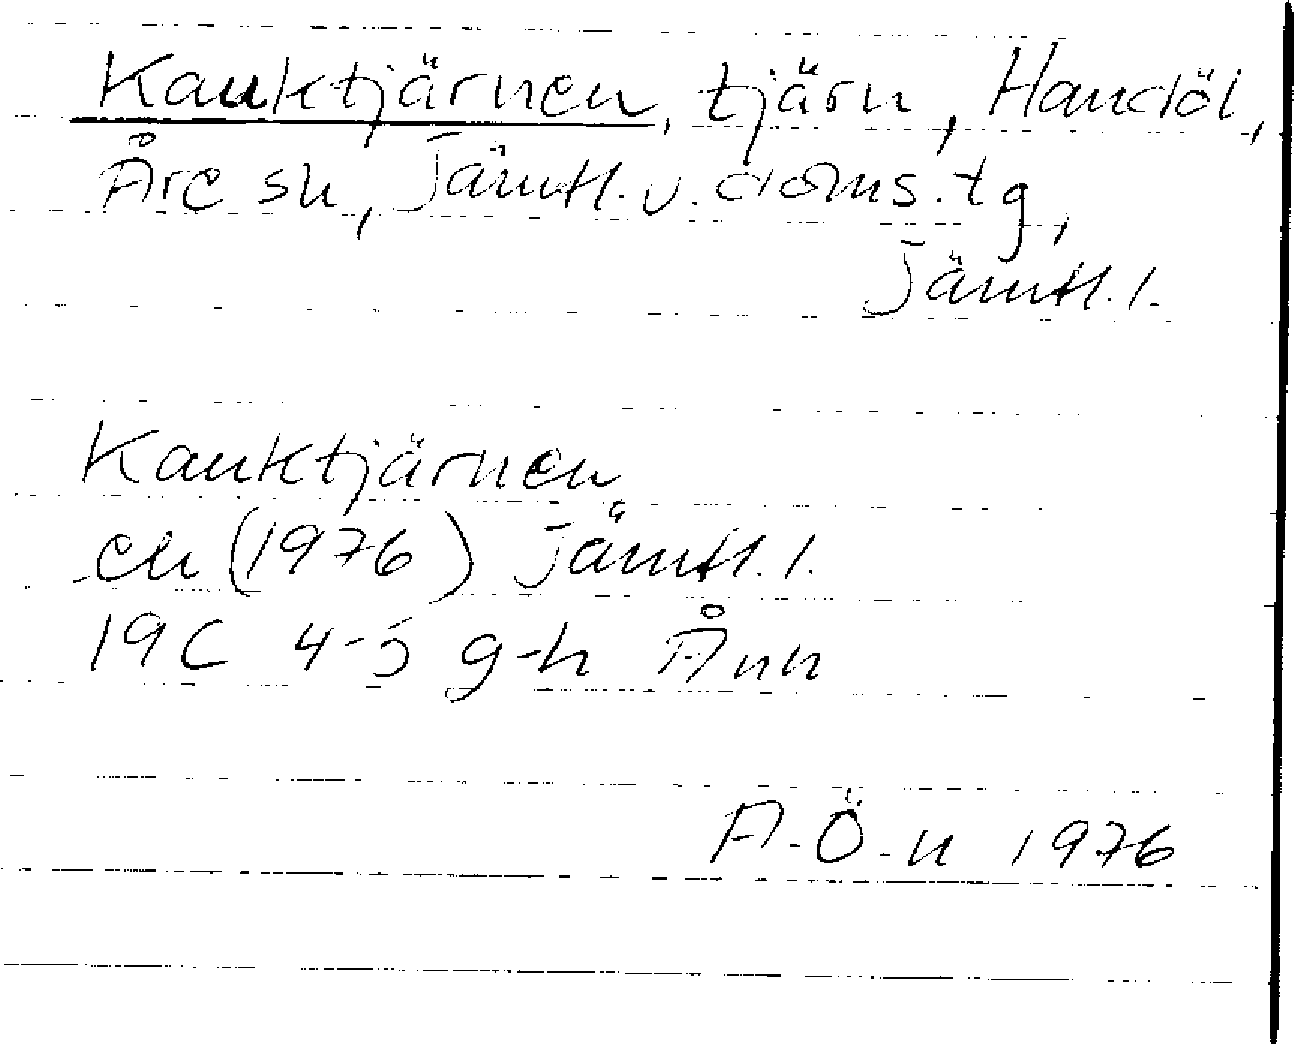 Kauktjärnen, tjärn, Handöl,
Åre sn, Jämtl. v. doms. tg,
Jämtl. l.
Kauktjärnen
ek (1976) Jämtl. l.
19C 4-5 g-h Ånn
A-Ö-n 1976